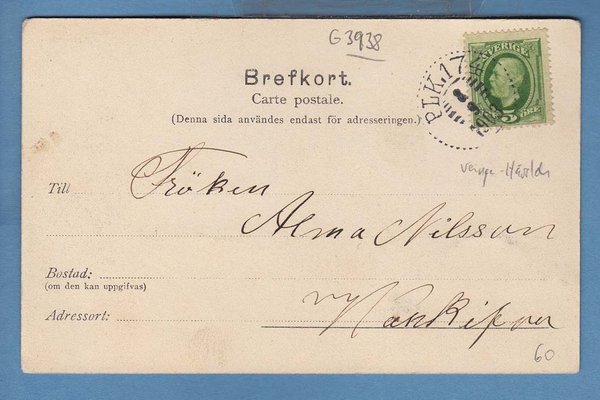 G3938
SVERIGE
5 ÖRE
PLK.17
Brefkort.
Carte postale.
(Denna sida användes endast för adresseringen.)
Till Fröken
Alma Nilsson
Bostad:
(om den kan uppgifvas)
Adressort:
60